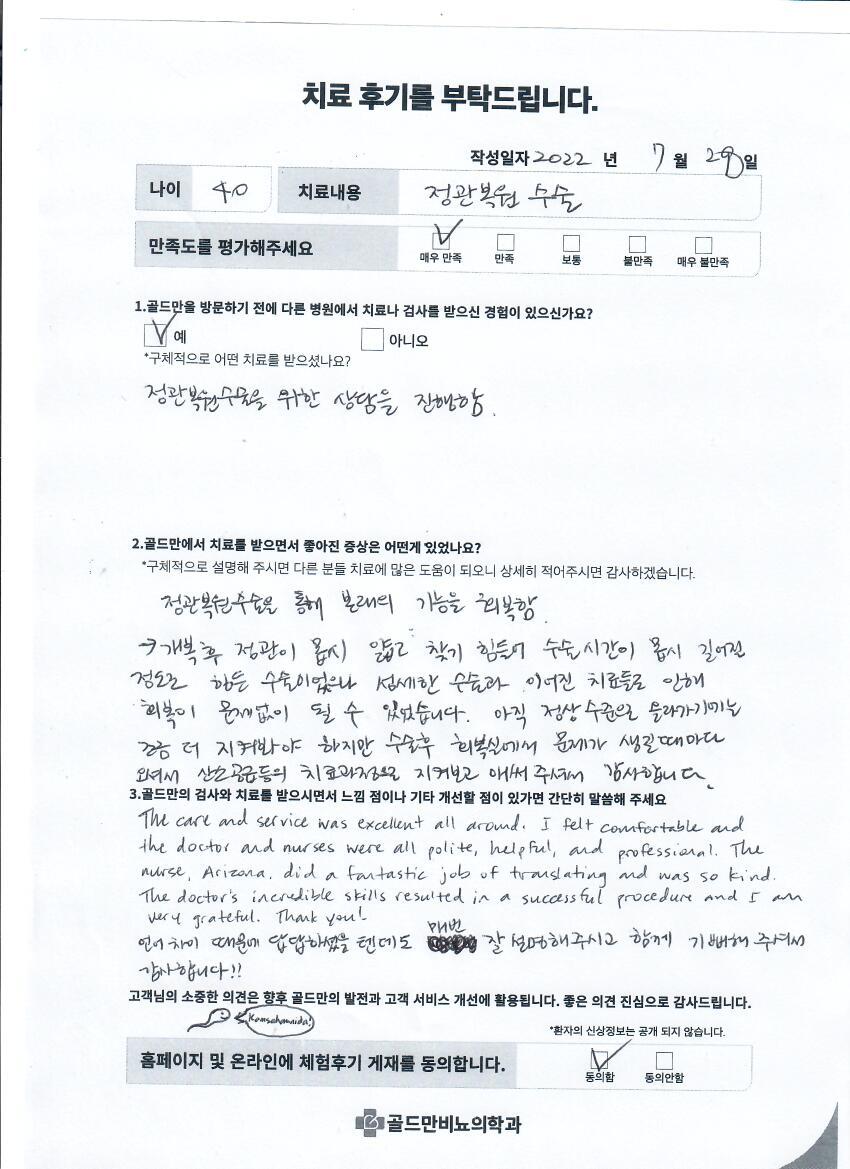 치료 후기를 부탁드립니다.
작성일자 2022 년 7 월 28 일
나이 40 치료내용 정관복원 수술
만족도를 평가해주세요 매우 만족 만족 보통 불만족 매우 불만족
1.골드만을 방문하기 전에 다른 병원에서 치료나 검사를 받으신 경험이 있으신가요?
예 아니오
*구체적으로 어떤 치료를 받으셨나요?
정관복원수술을 위한 상담을 진행함.
2.골드만에서 치료를 받으면서 좋아진 증상은 어떤게 있었나요?
*구체적으로 설명해 주시면 다른 분들 치료에 많은 도움이 되오니 상세히 적어주시면 감사하겠습니다.
정관복원수술을 통해 본래의 기능을 회복함.
→ 개복후 정관이 몹시 얇고 찾기 힘들어 수술시간이 몹시 길어진
정도로 힘든 수술이었으나 섬세한 수술과 이어진 치료들로 인해
회복이 문제없이 될 수 있었습니다. 아직 정상수준으로 올라가기에는
조금 더 지켜봐야 하지만 수술후 회복실에서 문제가 생길때마다
오셔서 산소공급등의 치료과정으로 지켜보고 애써주셔서 감사합니다.
3.골드만의 검사와 치료를 받으시면서 느낌 점이나 기타 개선할 점이 있가면 간단히 말씀해 주세요
The care and service was excellent all around. I felt comfortable and
the doctor and nurses were all polite, helpful, and professional. The
nurse, Arizona, did a fantastic job of translating and was so kind.
The doctor's incredible skills resulted in a successful procedure and I am
very grateful. Thank you!
언어차이 때문에 답답하셨을 텐데도 매번 잘 설명해주시고 함께 기뻐해 주셔서
감사합니다!!
고객님의 소중한 의견은 향후 골드만의 발전과 고객 서비스 개선에 활용됩니다. 좋은 의견 진심으로 감사드립니다.
Kamsahamnida!
*환자의 신상정보는 공개 되지 않습니다.
홈페이지 및 온라인에 체험후기 게재를 동의합니다. 동의함 동의안함
골드만비뇨의학과